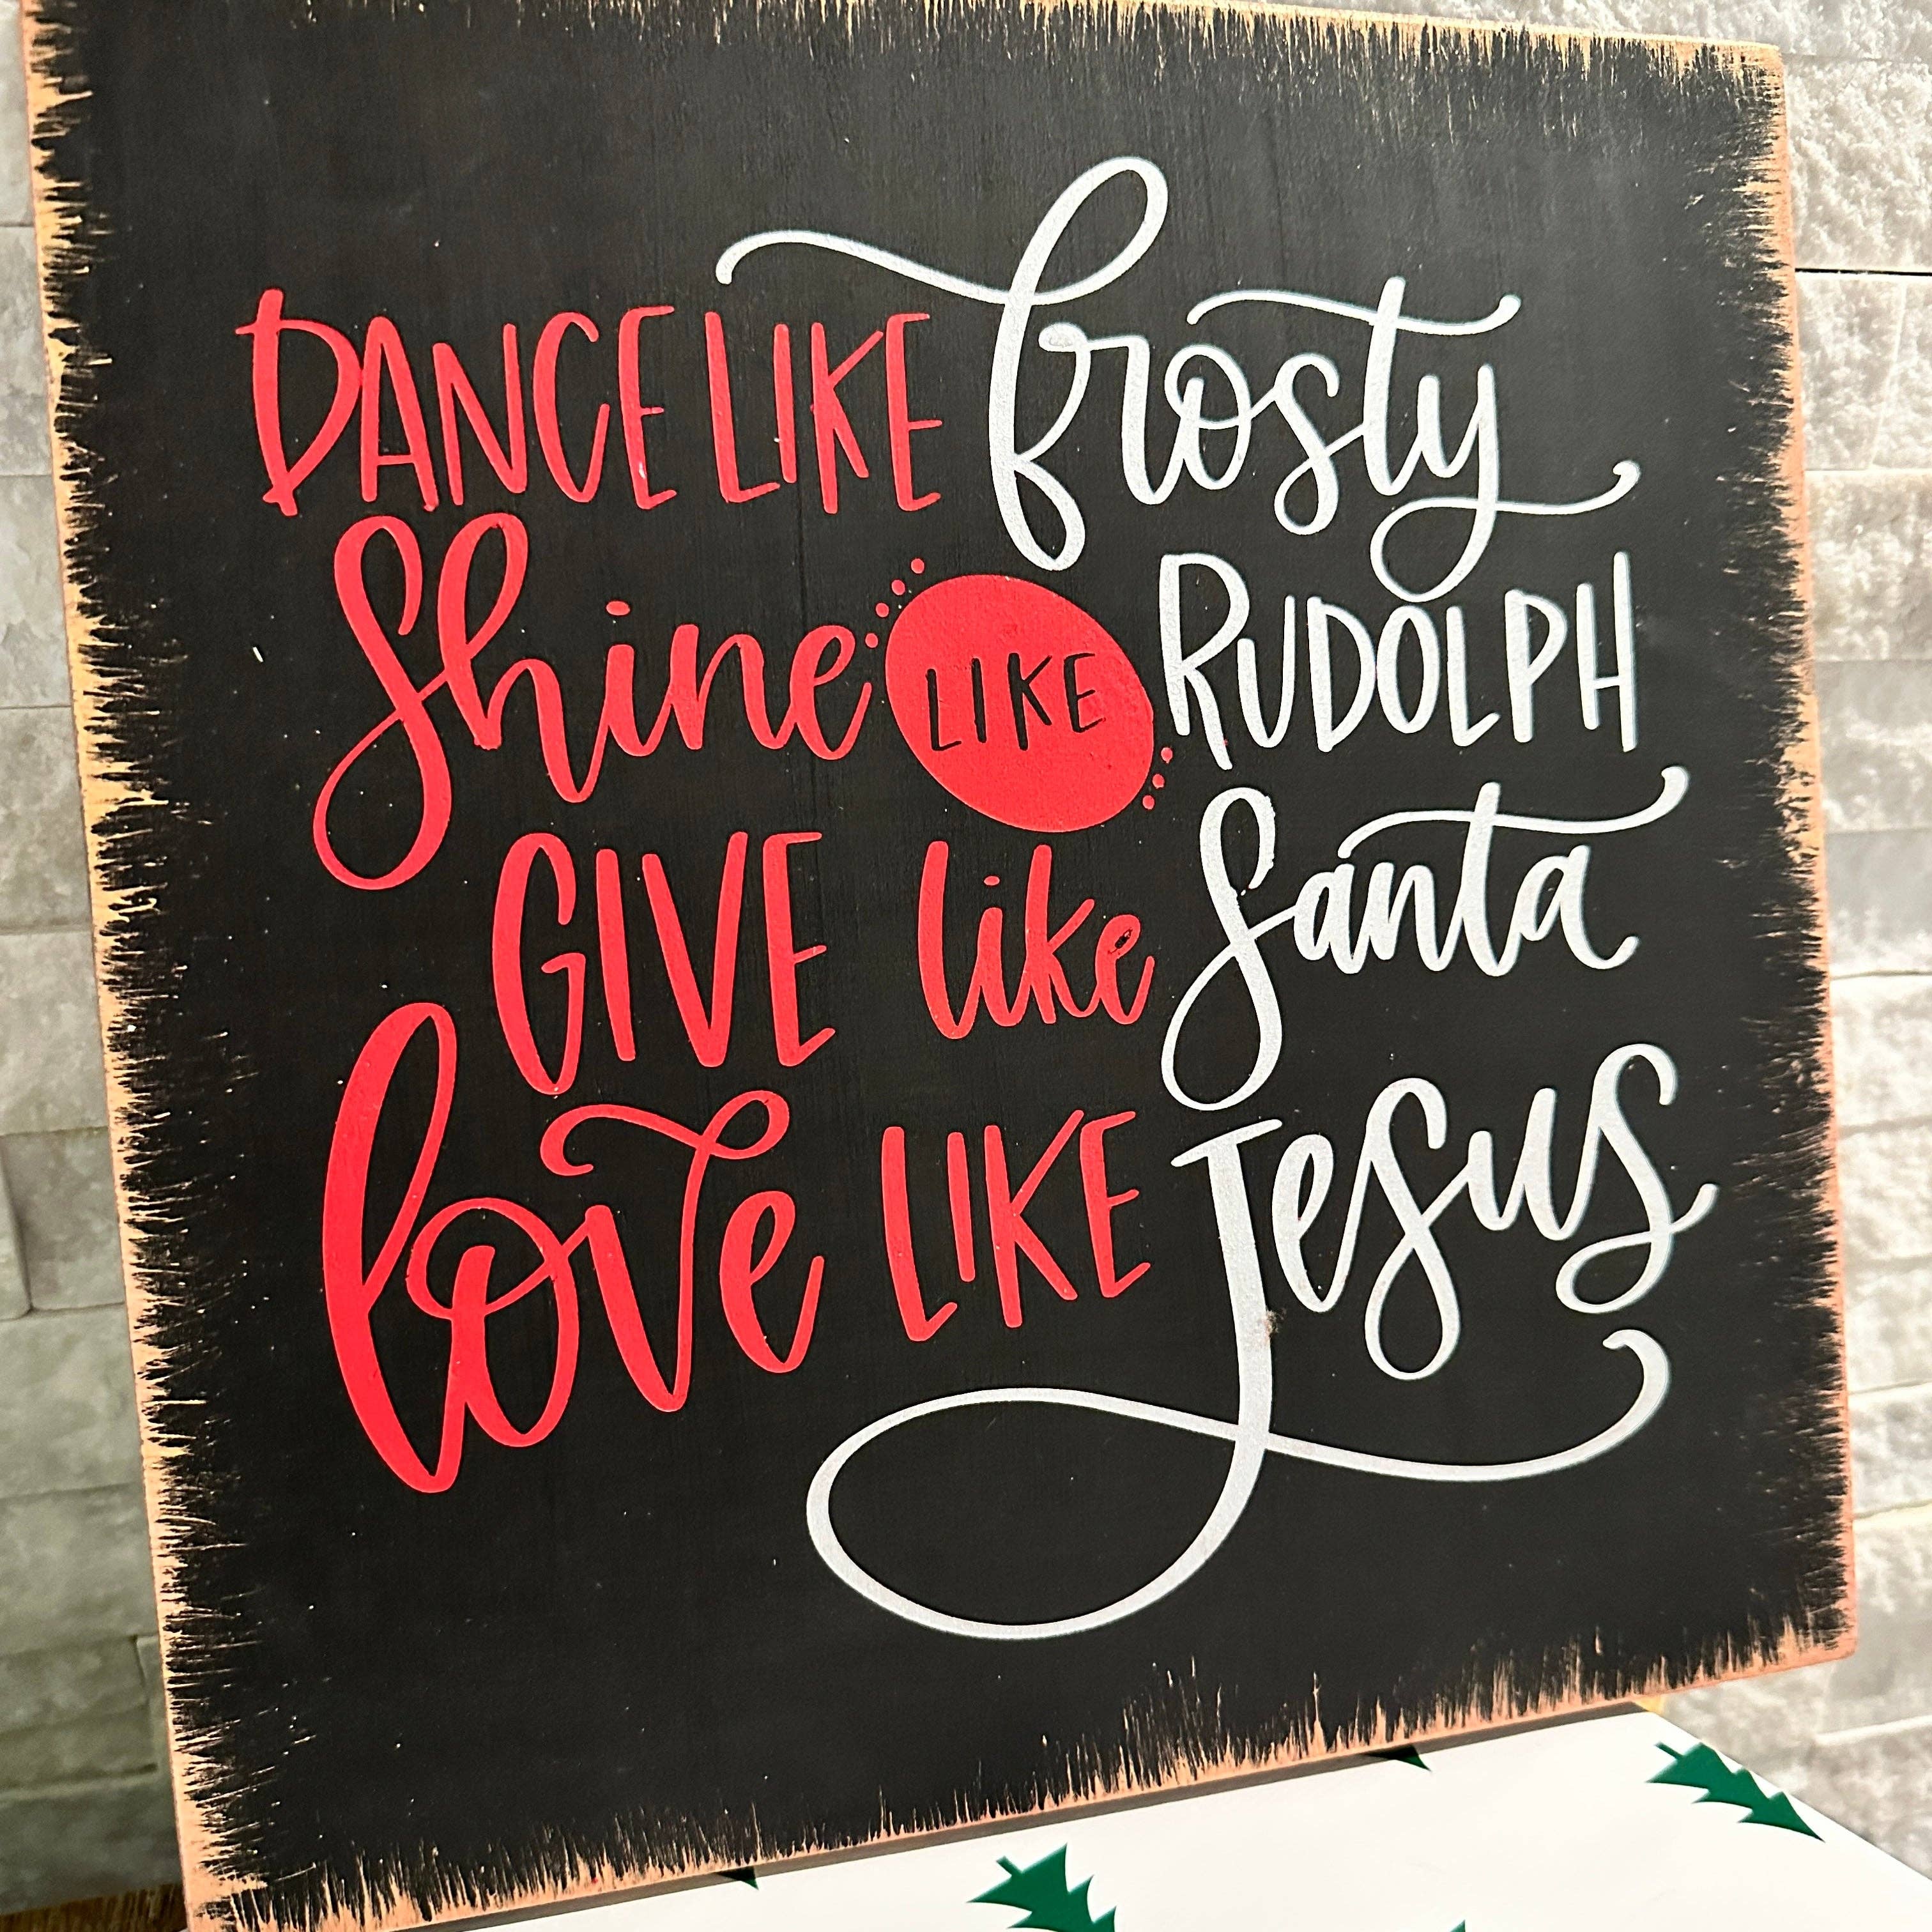 DANCE LIKE frosty
Shine LIKE RUDOLPH
GIVE like Santa
love LIKE Jesus